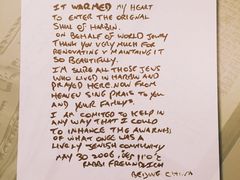 IT WARMED MY HEART
TO ENTER THE ORIGNAL
SHUL OF HARBIN.
ON BEHALF OF WORLD JEWRY
THANK YOU VERY MUCH FOR
RENOVATING & MAINTAINING IT
SO BEAUTIFULLY.
I'M SURE ALL THOSE JEWS
WHO LIVED IN HARBIN AND
PRAYED HERE, NOW FROM
HEAVEN SING PRAIS TO YOU
AND YOUR FAMILYS.
I AM COMITED TO HELP IN
ANY WAY THAT I COULD
TO INHANCE THE AWARNESS
OF WHAT ONCE WAS A
LIVELY JEWISH COMMUNITY
MAY 30 2006.
RABBI FREUNDLICH
BEIJING CHINA